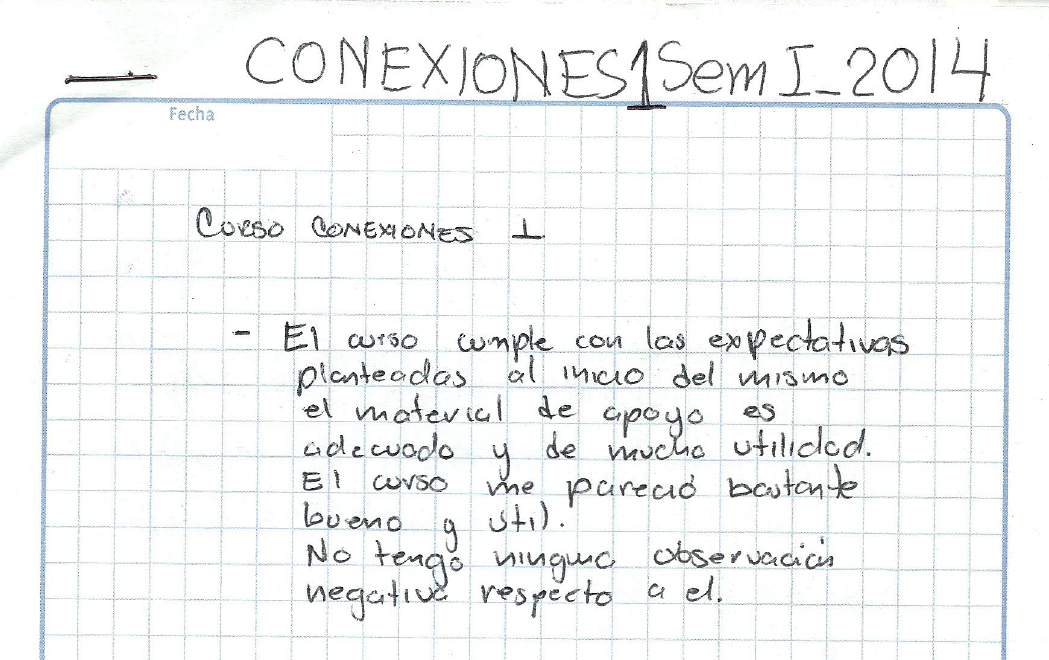 CONEXIONES 1 Sem I_2014
Fecha
CURSO CONEXIONES 1
- El curso cumple con las expectativas
planteadas al inicio del mismo
el material de apoyo es
adecuado y de mucha utilidad.
El curso me pareció bastante
bueno y útil.
No tengo ninguna observación
negativa respecto a el.